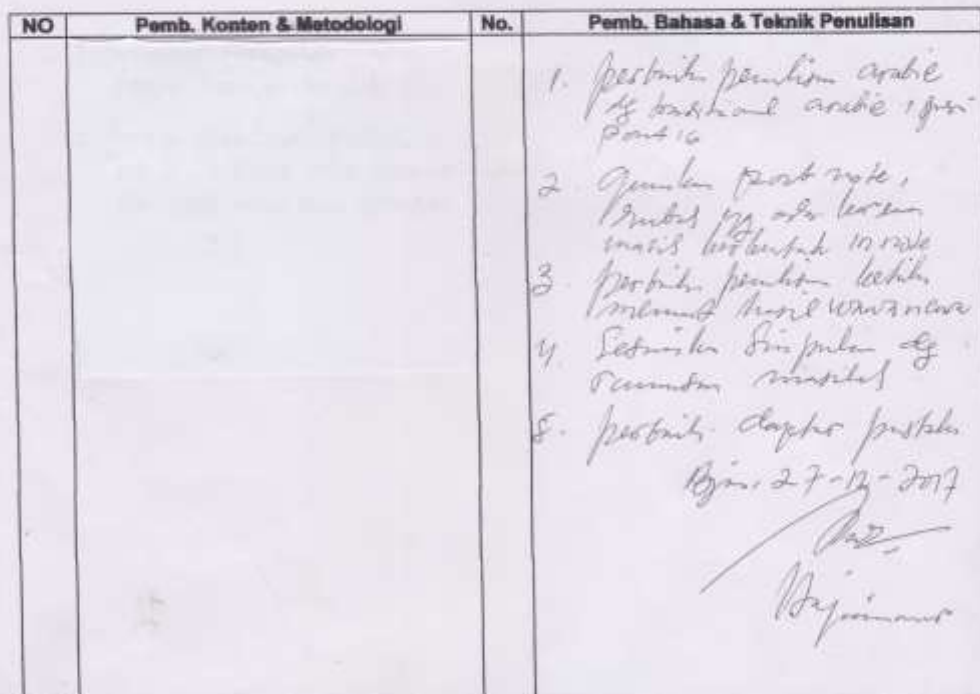 NO Pemb. Konten & Metodologi No. Pemb. Bahasa & Teknik Penulisan
1. perbaiki penulisan arabic
dg traditional arabic,
Pont 16
2. Gunakan note,
yg ada karena
masih berbentuk in note
3. perbaiki penulisan ketika
memuat hasil wawancara
4. Sesuaikan Simpulan dg
rumusan masalah
5. perbaiki daptar pustaka
27-12-2017